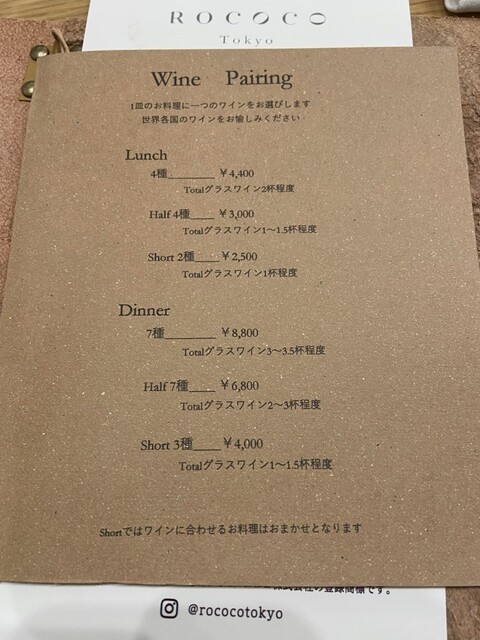 ROCOCO
Tokyo
Wine Pairing
1皿のお料理に一つのワインをお選びします
世界各国のワインをお愉しみください
Lunch
4種________ ¥4,400
Totalグラスワイン2杯程度
Half 4種____ ¥3,000
Totalグラスワイン1〜1.5杯程度
Short 2種____¥2,500
Totalグラスワイン1杯程度
Dinner
7種________ ¥8,800
Totalグラスワイン3〜3.5杯程度
Half 7種____ ¥6,800
Totalグラスワイン2〜3杯程度
Short 3種____¥4,000
Totalグラスワイン1〜1.5杯程度
Shortではワインに合わせるお料理はおまかせとなります
株式会社の登録商標です。
@rococotokyo